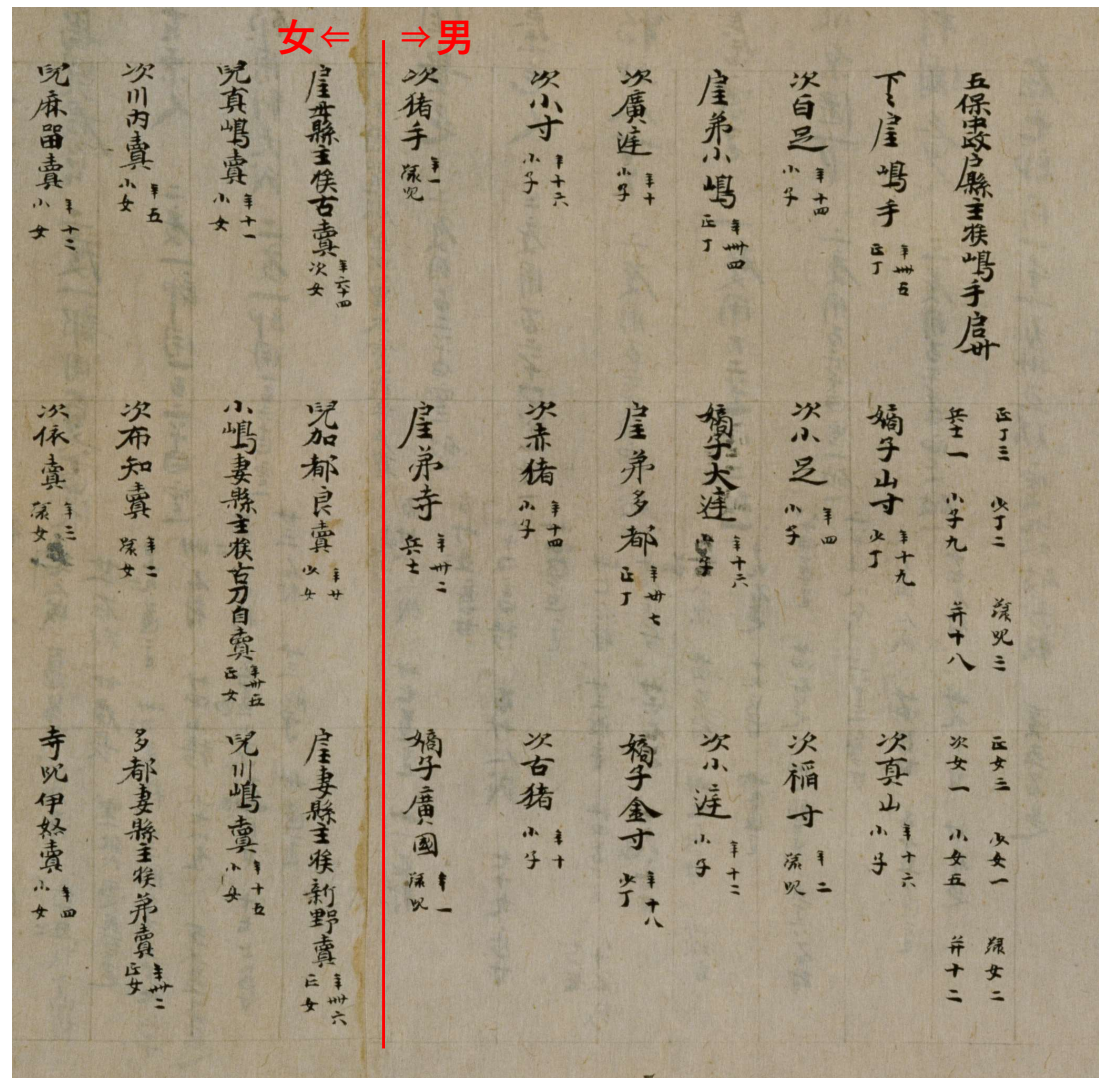 女⇐ ⇒男
五保中政戸縣主族嶋手戸口卅
正丁三 少丁二 緑兒三
兵士一 小子九 并十八
正女三 少女一 緑女二
次女一 小女五 并十二
下〻戸主嶋手 年卌五 正丁
嫡子山寸 年十九 少丁
次真山 年十六 小子
次自足 年十四 小子
次小足 年四 小子
次稲寸 年二 緑兒
戸主弟小嶋 年卌四 正丁
嫡子大庭 年十六 小子
次小庭 年十二 小子
次廣庭 年十 小子
戸主弟多都 年卅七 正丁
嫡子金寸 年十八 少丁
次小寸 年十六 小子
次赤猪 年十四 小子
次古猪 年十 小子
次猪手 年一 緑兒
戸主弟寺 年卅二 兵士
嫡子廣國 年一 緑兒
戸主母縣主族古賣 年六十四 次女
兒加都良賣 年廿 少女
戸主妻縣主族新野賣 年卌六 正女
兒真嶋賣 年十一 小女
小嶋妻縣主族古刀自賣 年卅五 正女
兒川嶋賣 年十五 小女
次川内賣 年五 小女
次布知賣 年二 緑女
多都妻縣主族弟賣 年卅二 正女
兒麻留賣 年十二 小女
次依賣 年三 緑女
寺兒伊怒賣 年四 小女